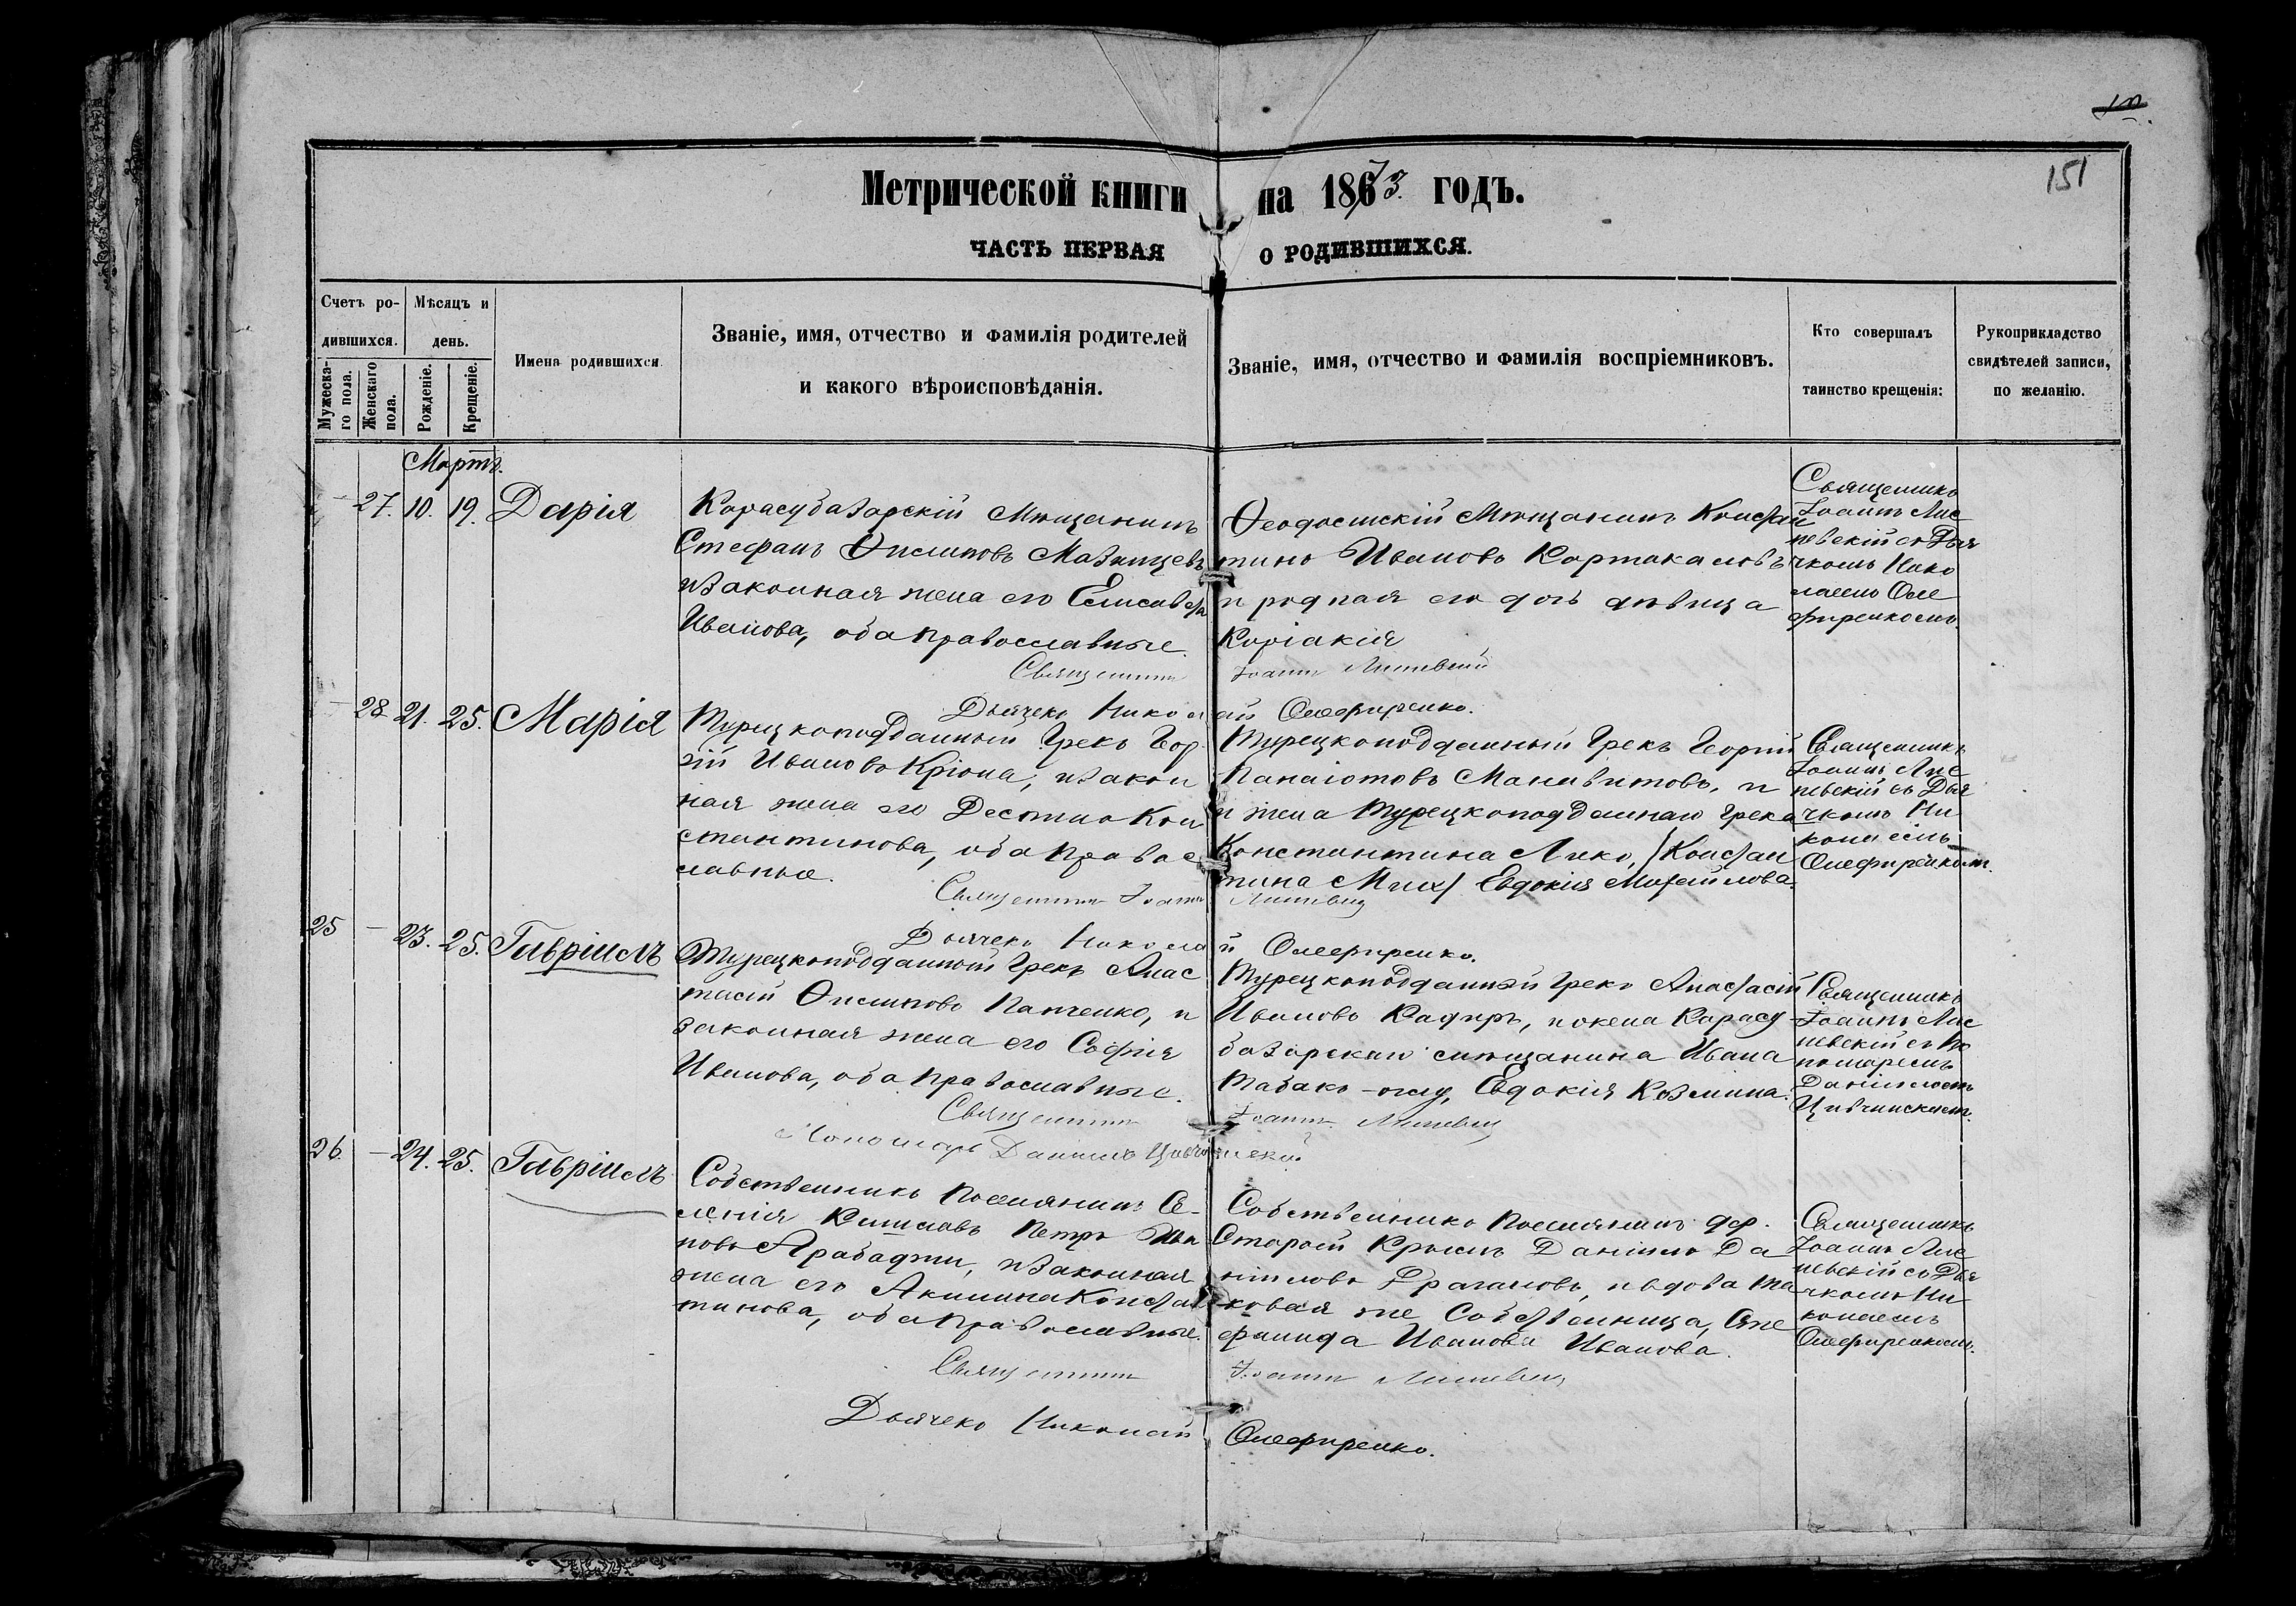 151
Метрической книги на 1873 годъ.
ЧАСТЬ ПЕРВАЯ О РОДИВШИХСЯ.
Счетъ родившихся.
Мужескаго пола.
Женскаго пола.
Мѣсяцъ и день.
Рожденіе.
Крещеніе.
Имена родившихся.
Званіе, имя, отчество и фамилія родителей
и какого вѣроисповѣданія.
Званіе, имя, отчество и фамилія воспріемниковъ.
Кто совершалъ
таинство крещенія:
Рукоприкладство
свидѣтелей записи,
по желанію.
Мартъ.
- 27. 10. 19. Дарія
Карасубазарскій Мѣщанинъ
Стефанъ
и законная жена его Елисавета
Иванова, оба православные.
Ѳеодосійскій Мѣщанинъ Констан
тинъ Ивановъ
и родная его дочь дѣвица
Киріакія
Священникъ
Іоаннъ Лис
невскій съ Дья
чкомъ Нико
лаемъ Оле
фиренкомъ.
Священникъ Іоаннъ Лисневскій
Дьячекъ Николай Олефиренко.
- 28 21. 25. Марія
Турецкоподданный Грекъ Геор
гій Ивановъ Кріона, и закон
ная жена его Деспина Кон
стантинова, оба право
славные.
Турецкоподданный Грекъ Георгій
Панаіотовъ и
и жена Турецкоподданнаго Грека
Константина Лико, /Констан
тина Евдокія Михайлова.
Священникъ
Іоаннъ Лис
невскій съ Дья
чкомъ Ни
колаемъ
Олефиренкомъ.
Священникъ Іоаннъ Лисневскій
Дьячекъ Николай Олефиренко.
25 - 23. 25. Гавріилъ
Турецкоподданный Грекъ Анас
тасій Папченко, и
законная жена его Софія
Иванова, оба православные.
Турецкоподданный Грекъ Анастасій
Ивановъ Кадыръ, и жена Карасу
базарскаго мѣщанина Ивана
Табакъ-оглу, Евдокія Козмина.
Священникъ
Іоаннъ Лис
невскій съ По
номаремъ
Даніиломъ
Священникъ Іоаннъ Лисневскій
Пономарь Даніилъ
26. - 24. 25. Гавріилъ
Собственникъ Поселянинъ Се-
ленія Кишлавъ Петръ Ива
новъ Арабаджи, и законная
жена его Акилина Констан
тинова, оба православные.
Собственникъ Поселянинъ дер.
Старой Крымъ Даніилъ Да
ніиловъ Драгановъ, и вдова та
ковая же Собственница, Епе
фанида Иванова Иванова.
Священникъ
Іоаннъ Лис
невскій съ Дья
чкомъ Ни
колаемъ
Олефиренкомъ.
Священникъ Іоаннъ Лисневскій
Дьячекъ Николай Олефиренко.